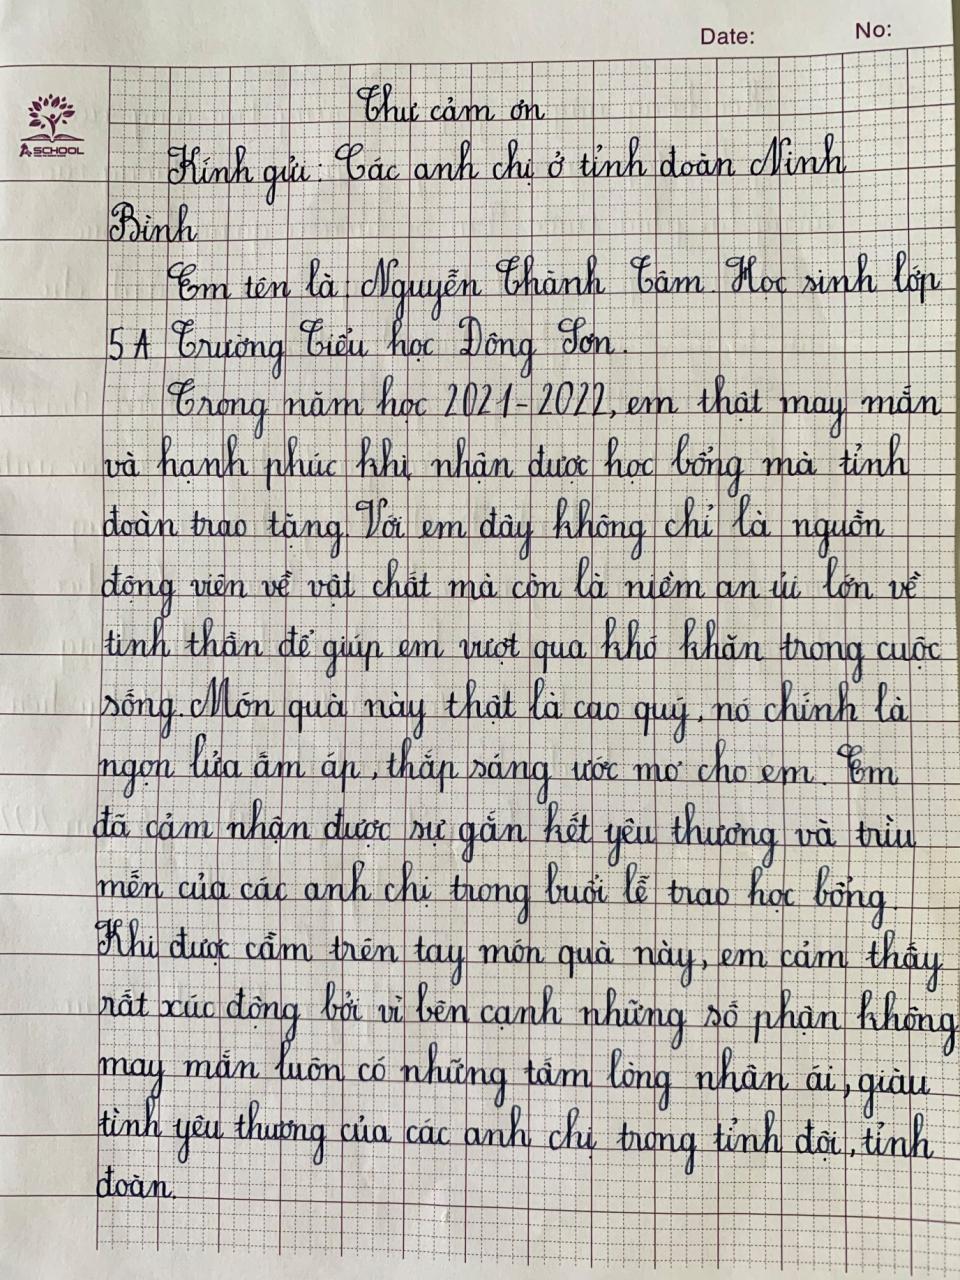 Date: No:
A SCHOOL
Thư cảm ơn
Kính gửi: Các anh chị ở tỉnh đoàn Ninh
Bình
Em tên là: Nguyễn Thành Tâm. Học sinh lớp
5A Trường Tiểu học Đông Sơn.
Trong năm học 2021-2022, em thật may mắn
và hạnh phúc khi nhận được học bổng mà tỉnh
đoàn trao tặng. Với em đây không chỉ là nguồn
động viên về vật chất mà còn là niềm an ủi lớn về
tinh thần để giúp em vượt qua khó khăn trong cuộc
sống. Món quà này thật là cao quý, nó chính là
ngọn lửa ấm áp, thắp sáng ước mơ cho em. Em
đã cảm nhận được sự gắn kết yêu thương và trìu
mến của các anh chị trong buổi lễ trao học bổng.
Khi được cầm trên tay món quà này, em cảm thấy
rất xúc động bởi vì bên cạnh những số phận không
may mắn luôn có những tấm lòng nhân ái, giàu
tình yêu thương của các anh chị trong tỉnh đội, tỉnh
đoàn.